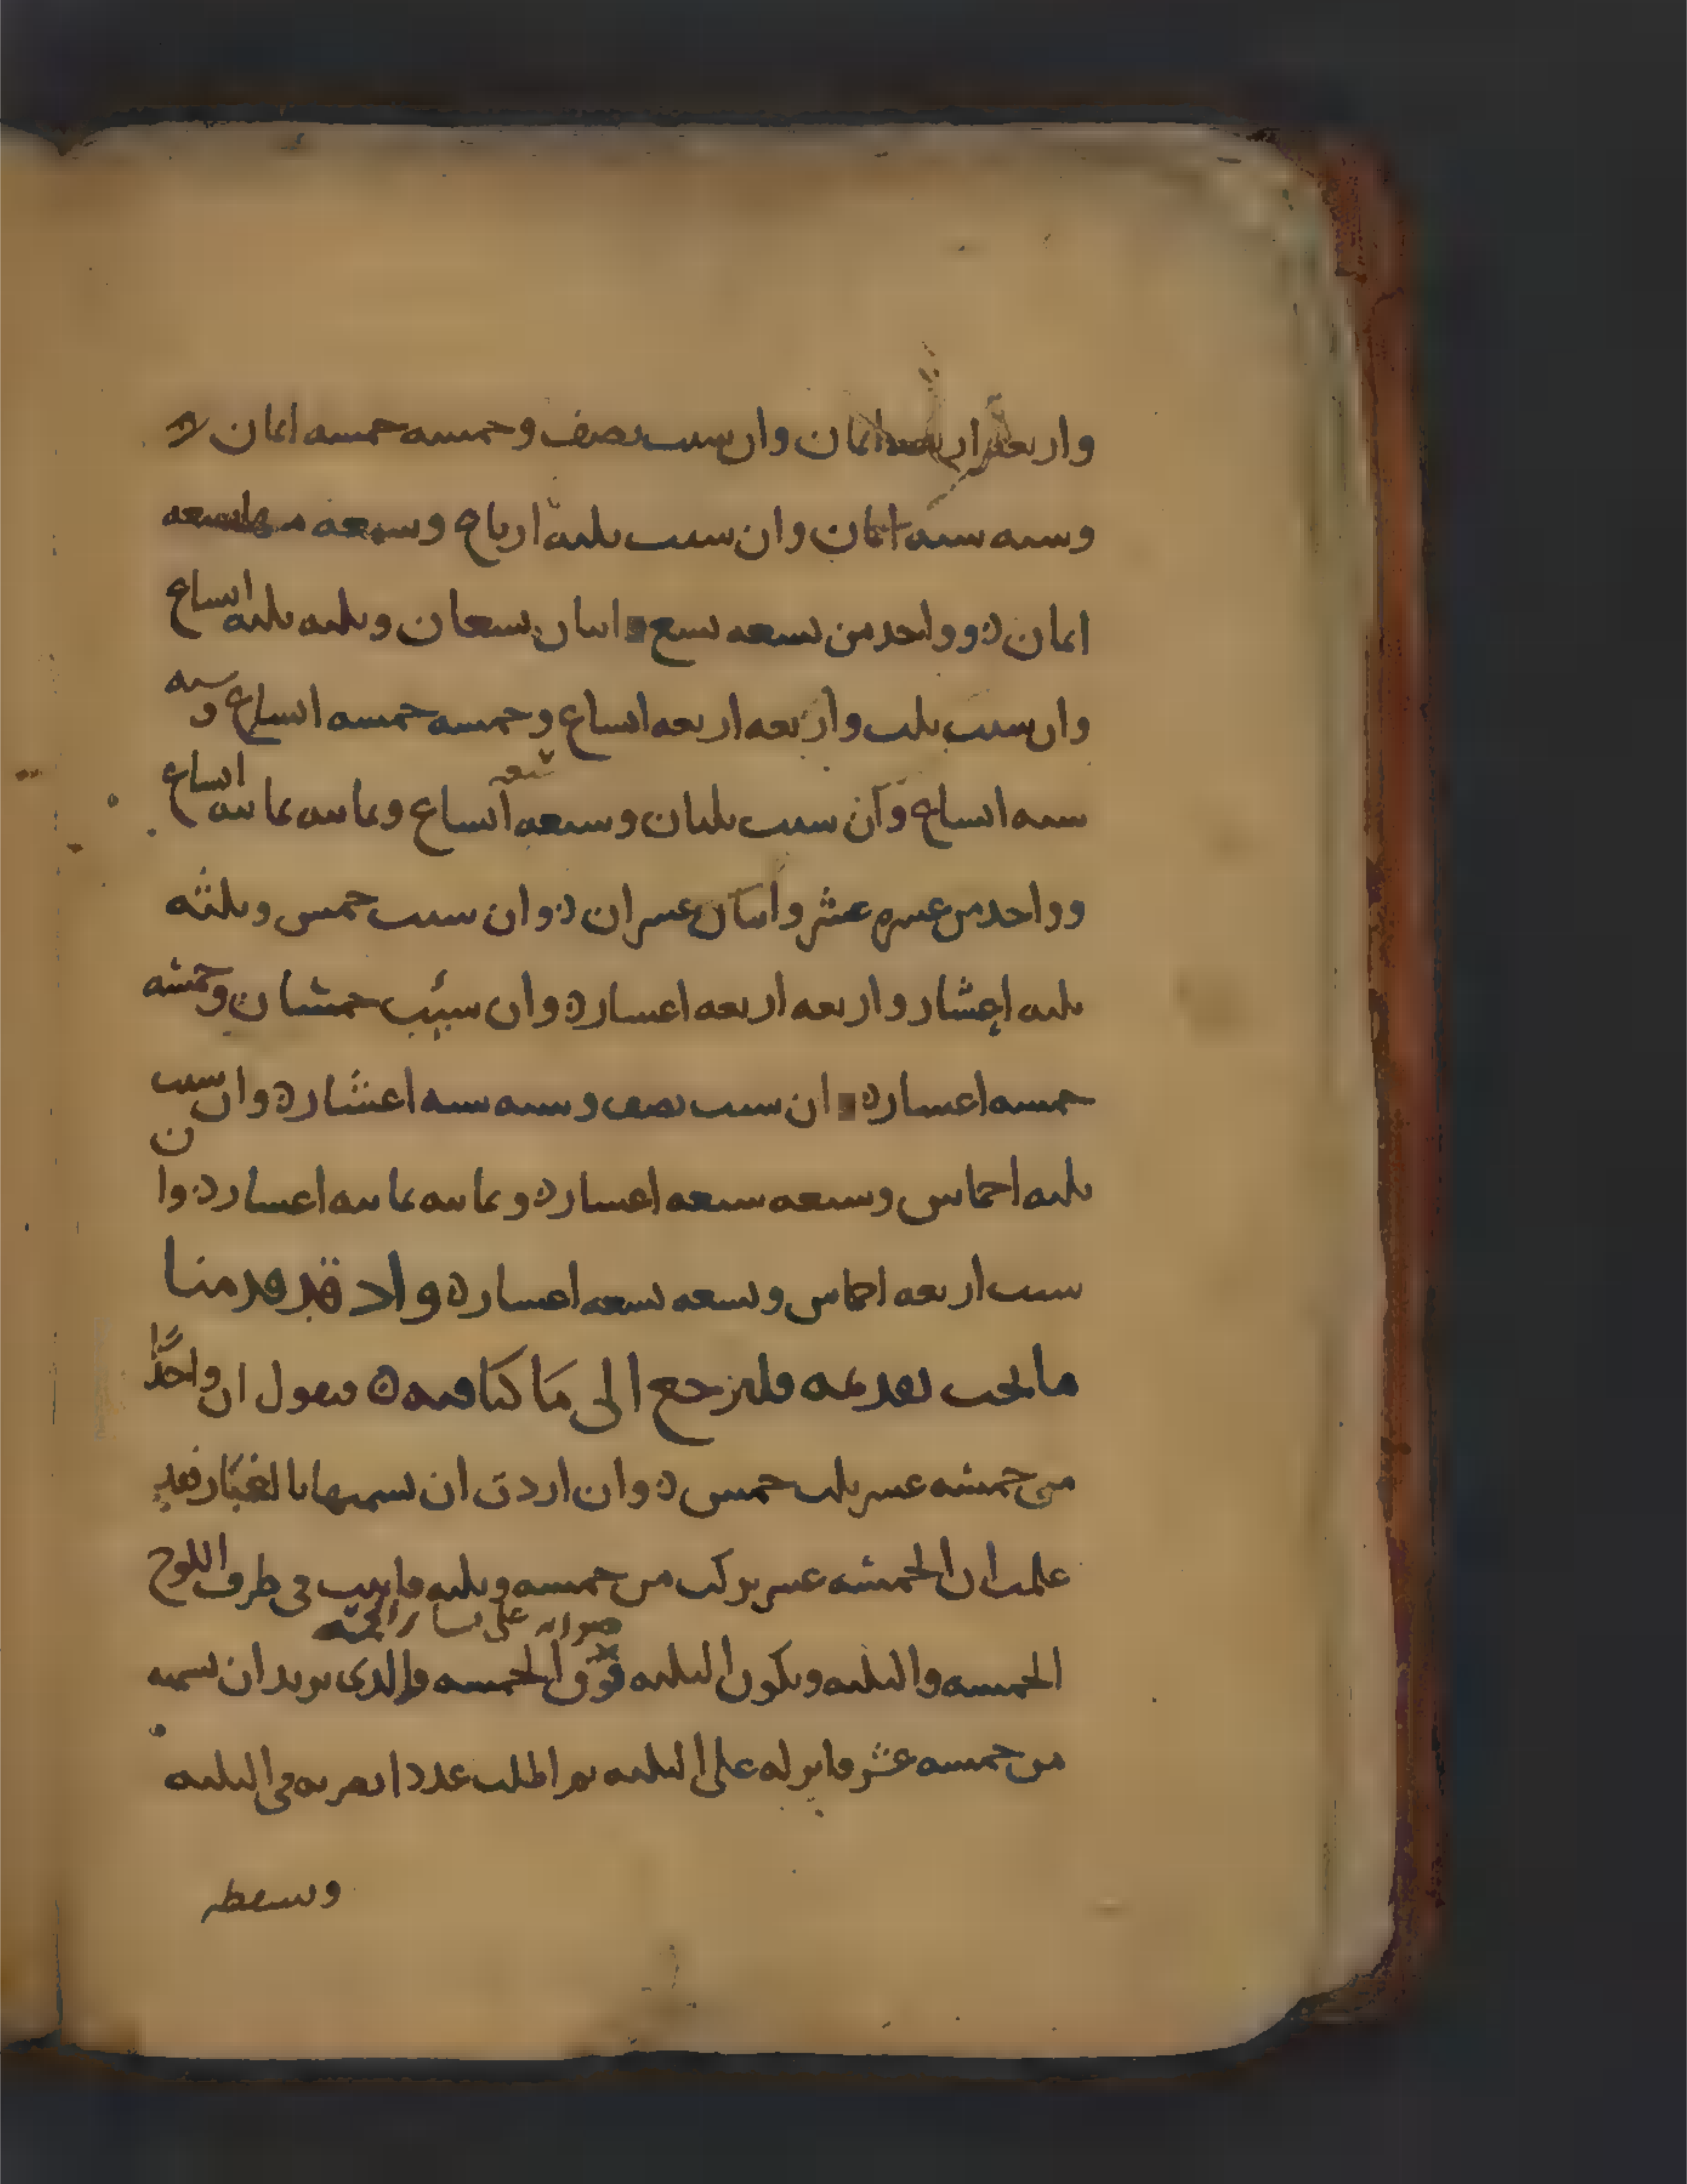 واربعه اربعه اثمان وان سيت نصف وخمسه خمسه اثمان ه
وسته سته اثمان وان سيت ثلثه ارباع وسبعه سبعه
اثمان ه وواحد من تسعه تسع واثنان تسعان وثلثه ثلثه اتساع
وان سيت ثلث واربعه اربعه اتساع وخمسه خمسه اتساع وسته
سته اتساع وان سيت ثلثان وسبعه سبعه اتساع وثمانيه ثمانيه اتساع
وواحد من عشره عشر واثنان عشران ه وان سيت خمس وثلثه
ثلثه اعشار واربعه اربعه اعشار ه وان سيت خمسان وخمسه
خمسه اعشار ه وان سيت نصف وسته سته اعشار ه وان سيت
ثلثه اخماس وسبعه سبعه اعشار ه وثمانيه ثمانيه اعشار ه وان
سيت اربعه اخماس وتسعه تسعه اعشار ه واد قد قدمنا
ما يجب تقديمه فلنرجع الى ما كنا فيه ه فنقول ان واحدًا
من خمسه عشر ثلث خمس ه وان اردت ان تسميها بالغبار فقد
علمت ان الخمسه عشر تركب من خمسه وثلثه فاثبت في طرف اللوح
الخمسه والثلثه ويكون الثلثه فوق الخمسه والدى تريد ان تسميه
على يسار الخمسه
من خمسه عشر فانزله على الثلثه ثم اطلب عددا تضربه في الثلثه